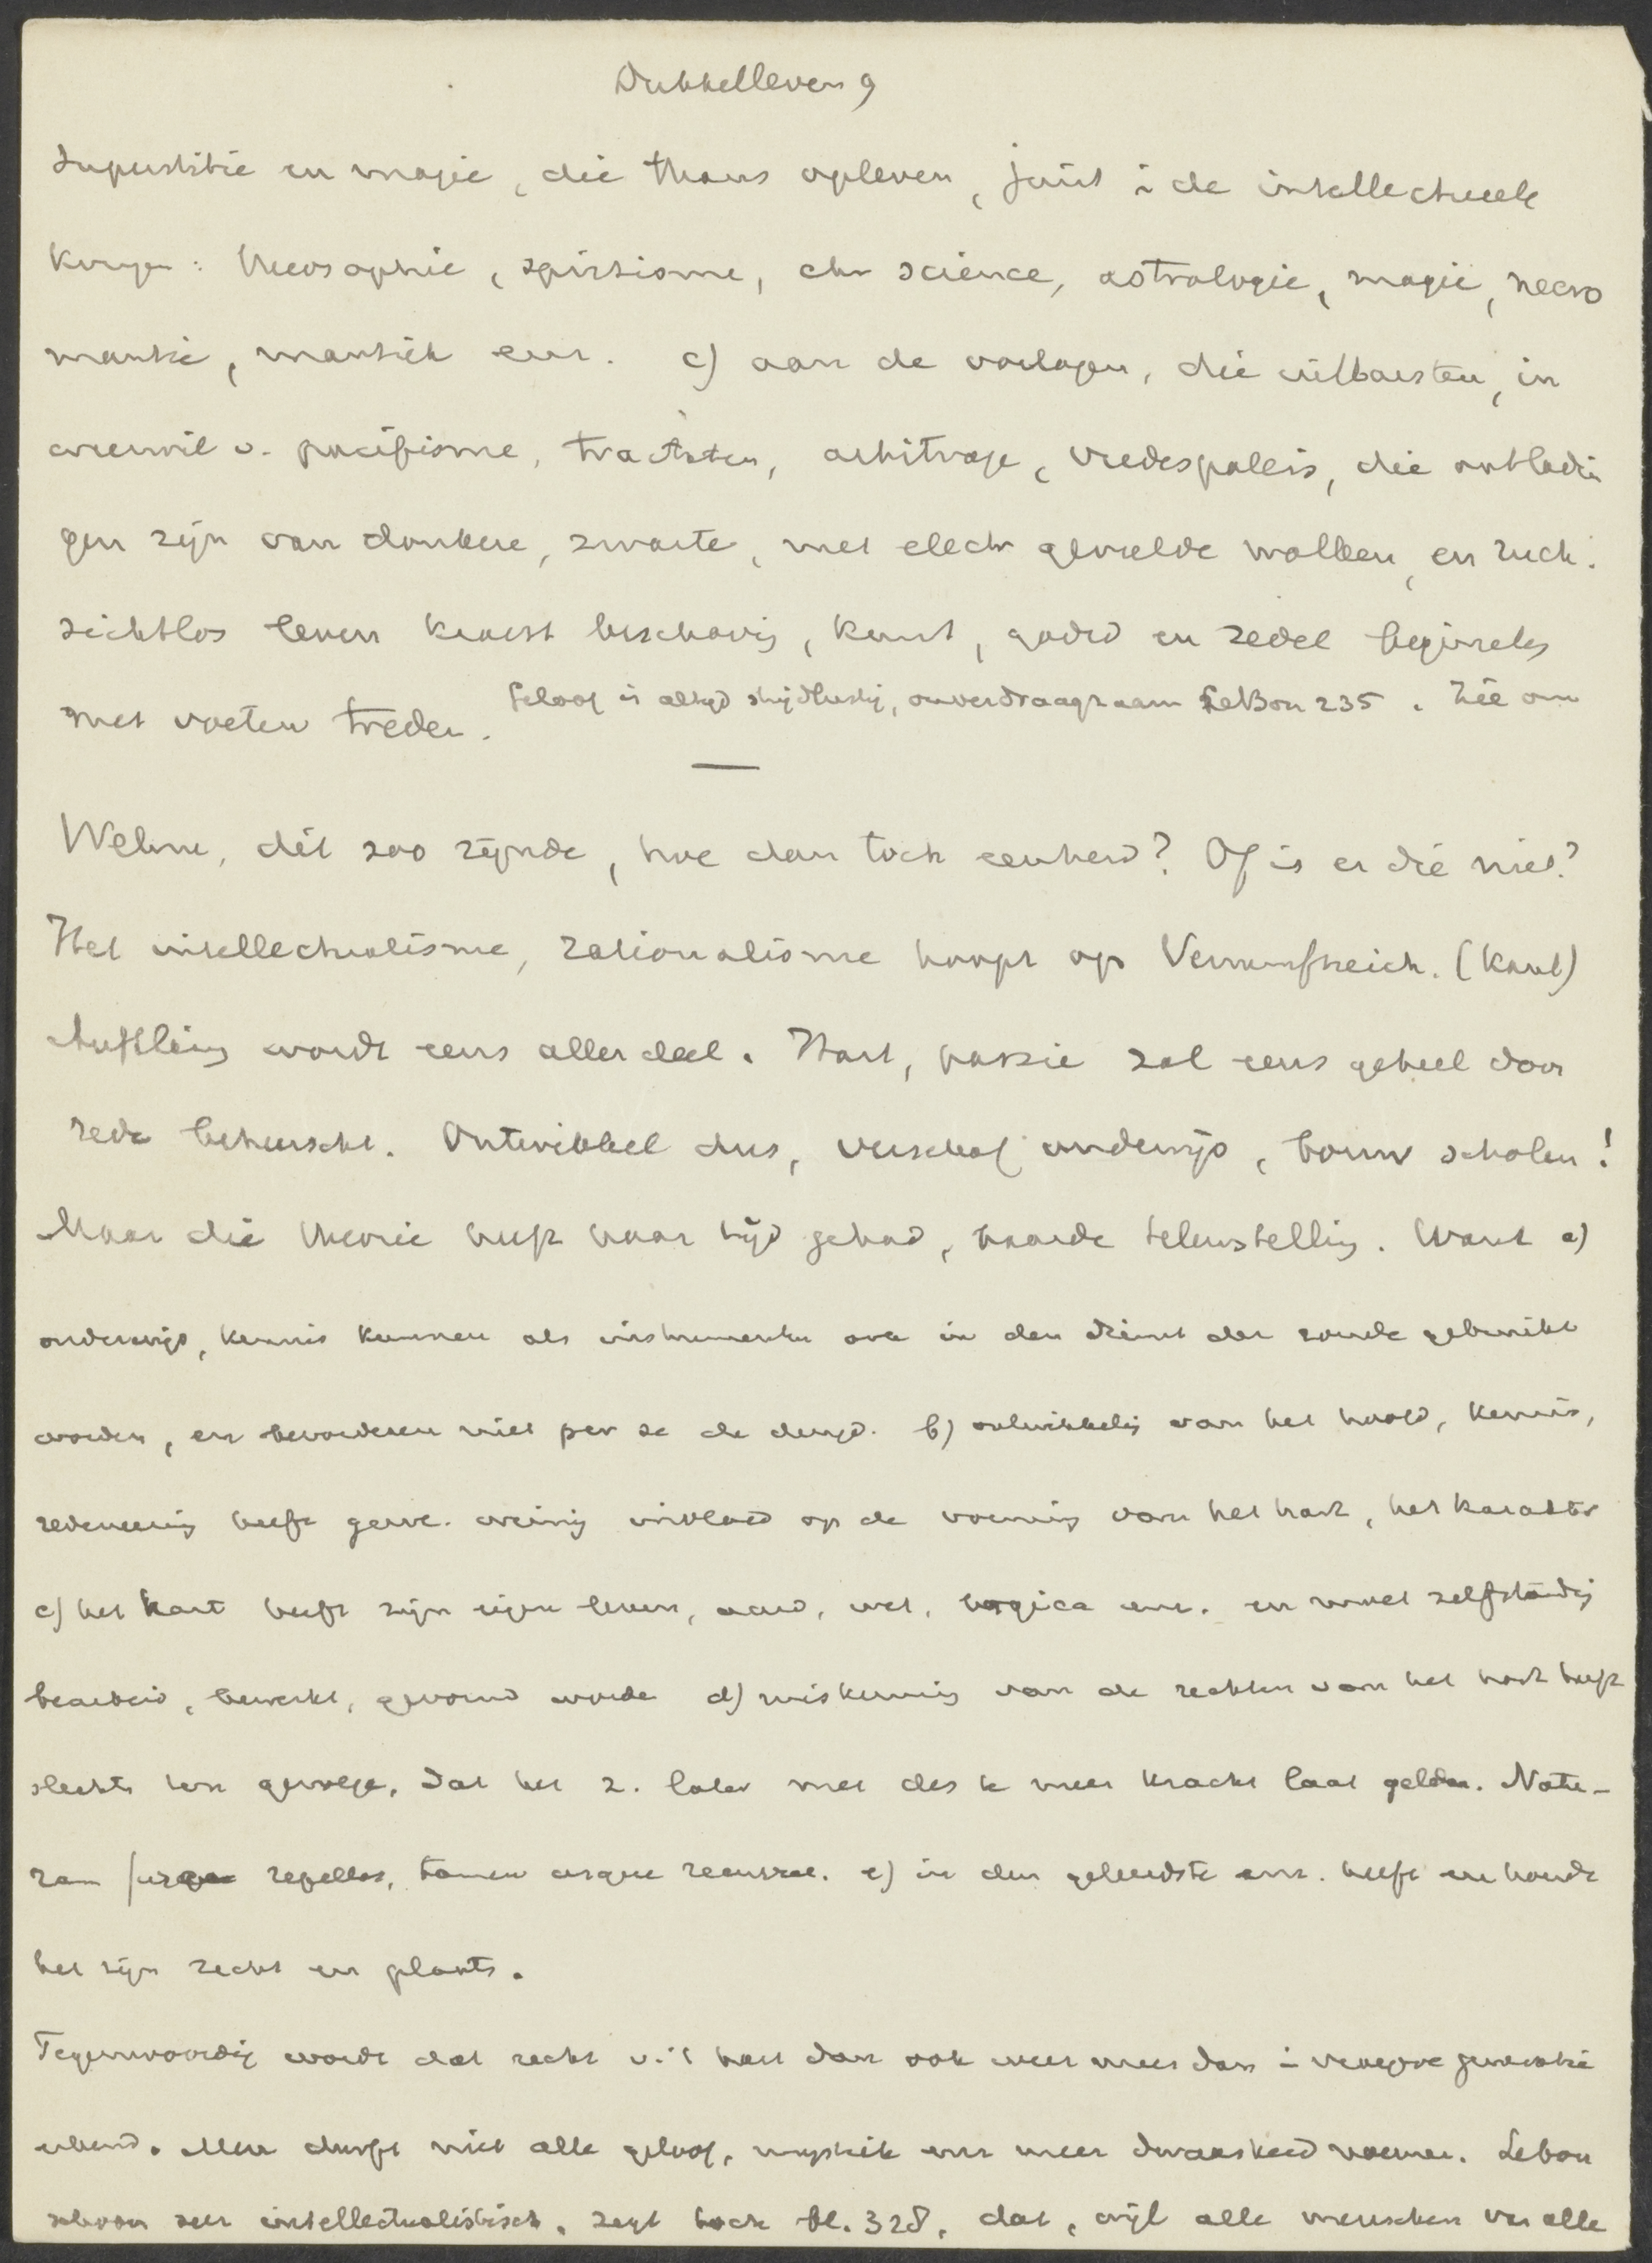 Dubbelleven 9
Superstitie en magie, die thans opleven, juist i de intellectueele
kringen: theosophie, spiritisme, chr science, astrologie, magie, necro
mantie, mantiek enz. c) aan de oorlogen, die uitbarsten, in
weerwil v. pacifisme, tractaten, arbitrage, vredespaleis, die ontladin
gen zijn van donkere, zwarte, met electr gevulde wolken, en rück.
sichtlos leven beschaving, kunst, godsd en zedel beginsels
met voeten treden.
Geloof is altijd strijdlustig, onverdraagzaam LeBon 235. Zie om
Welnu, dit zoo zijnde, hoe dan toch eenheid? Of is er die niet?
Het intellectualisme, rationalisme hoopt op Vernunftreich. (Kant)
Aufkläring wordt eens aller deel. Hart, passie zal eens geheel door
rede beheerscht. Ontwikkel dus, verschaf onderwijs, bouw scholen!
Maar die theorie heeft haar tijd gehad, baarde teleurstelling. Want a)
onderwijs, kennis kunnen als instrumenten ook in den dienst der zonde gebruikt
worden, en bevorderen niet per se de deugd. b) ontwikkeling van het hoofd, kennis,
redeneering heeft gew. weinig invloed op de vorming van het hart, het karakter
c) het hart heeft zijn eigen leven, aard, wet, logica enz. en moet zelfstandig
bearbeid, bewerkt, gevormd worde d) miskenning van de rechten van het hart heeft
slechts ten gevolge, dat het z. later met des te meer kracht laat gelden. Natu-
ram furca repellas, tamen usque recurret. e) in den geleerdste enz. heeft en houdt
het zijn recht en plaats.
Tegenwoordig wordt dat recht v. 't hart dan ook weer meer dan i vroegere generatie
erkend. Men durft niet alle geloof, mystiek enz meer dwaasheid noemen. Lebon
schoon zeer intellectualistisch, zegt toch bl. 328, dat, wijl alle menschen van alle